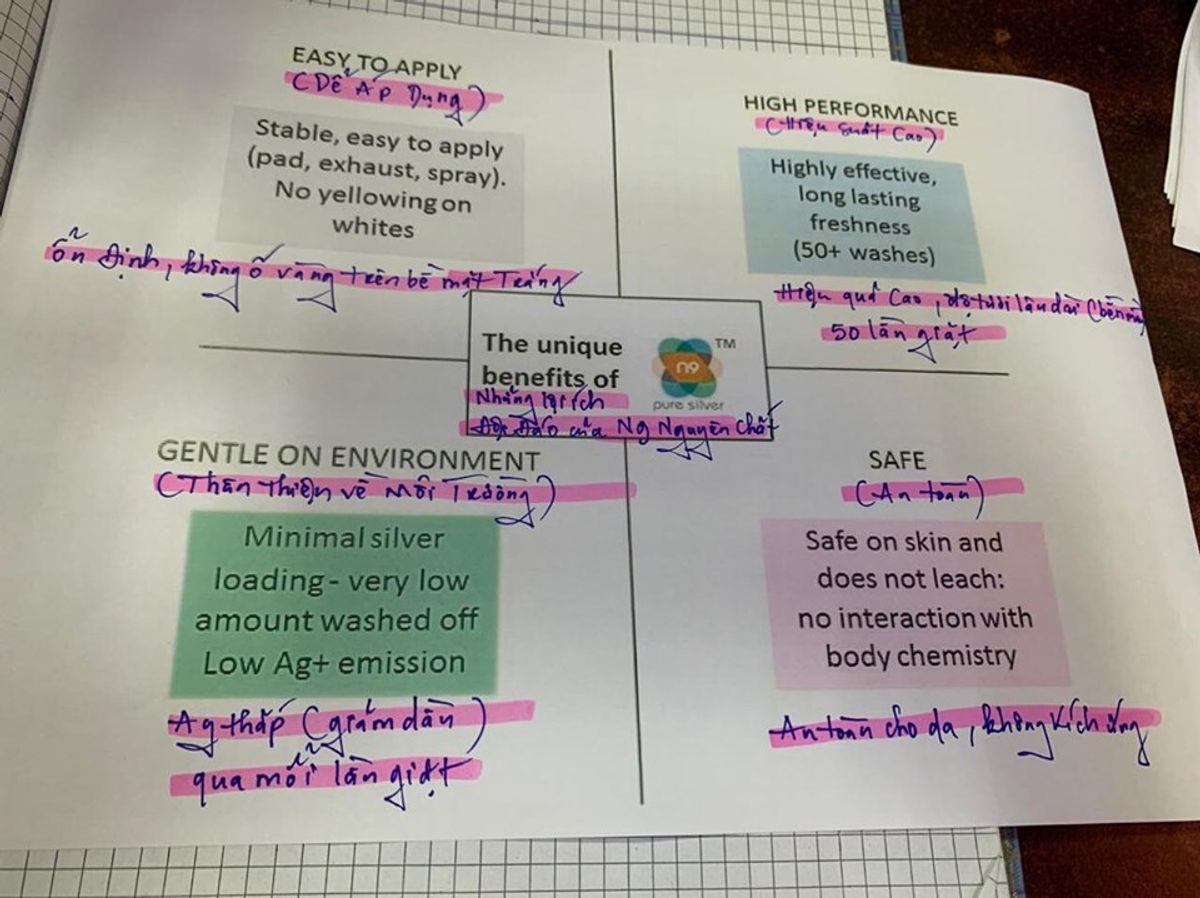 EASY TO APPLY
(Dễ Áp Dụng)
Stable, easy to apply
(pad, exhaust, spray).
No yellowing on
whites
Ổn Định, không ố vàng trên bề mặt Trắng
HIGH PERFORMANCE
(Hiệu suất Cao)
Highly effective,
long lasting
freshness
(50+ washes)
Hiệu quả Cao, độ tươi lâu dài (bền
50 lần giặt
The unique
benefits of
n9
TM
pure silver
Những lợi ích
Độc Đáo của N9 Nguyên Chất
GENTLE ON ENVIRONMENT
(Thân thiện về Môi Trường)
Minimal silver
loading - very low
amount washed off
Low Ag+ emission
Ag thấp (giảm dần)
qua mỗi lần giặt
SAFE
(An toàn)
Safe on skin and
does not leach:
no interaction with
body chemistry
An toàn cho da, không kích ứng